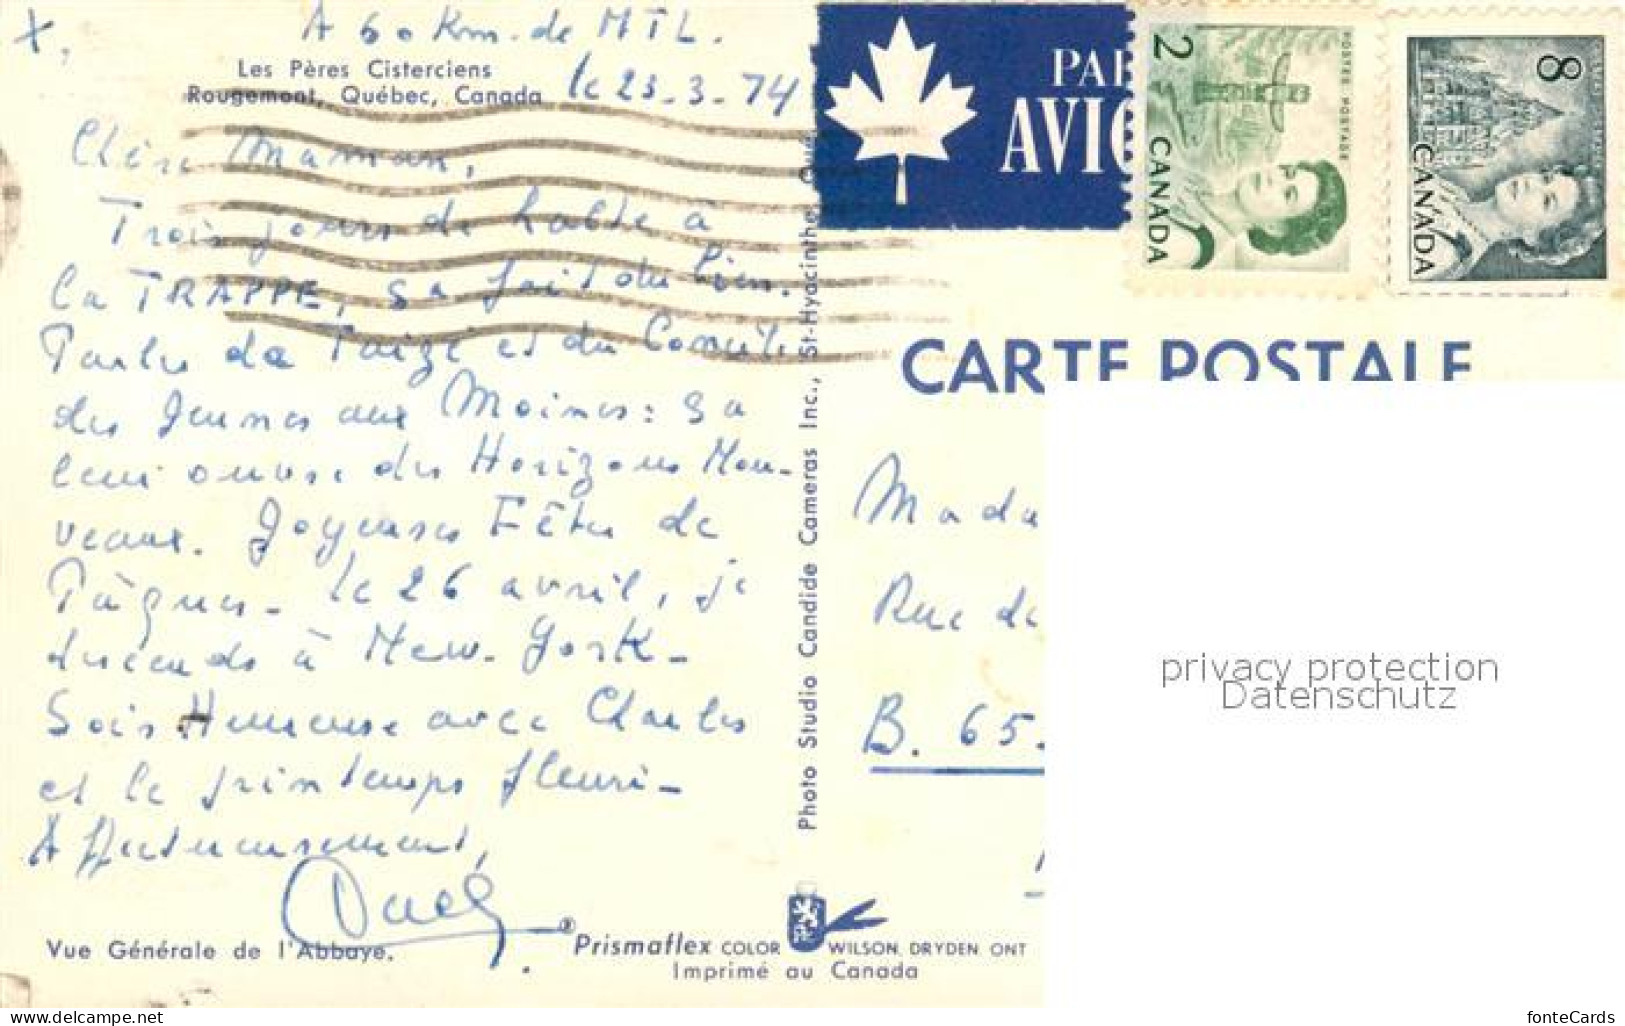 X.
A 60 Km. de MTL.
Les Pères Cisterciens
Rougemont, Québec, Canada
le 23-3-74
Chère Maman,
Trois jours de halte à
la TRAPPE, sa fait du bien.
Parler de Taizé et du Concile
des Jeunes aux Moines: sa
leur ouvre des Horizons Nou-
veaux. Joyeuses Fêtes de
Pâques- le 26 avril, je
descends à New-York-
Sois Heureuse avec Charles
et le printemps fleuri-
Affectueusement,
Vue Générale de l'Abbaye.
Prismaflex COLOR WILSON, DRYDEN ONT
Imprimé au Canada
Photo Studio Candide Cameras Inc., St-Hyacinthe, Qué.
PAR
AVIO
2
POSTES POSTAGE
CANADA
8
CANADA
CARTE POSTALE
Mada
Rue de
B. 65.
privacy protection
Datenschutz
www.delcampe.net
fonteCards